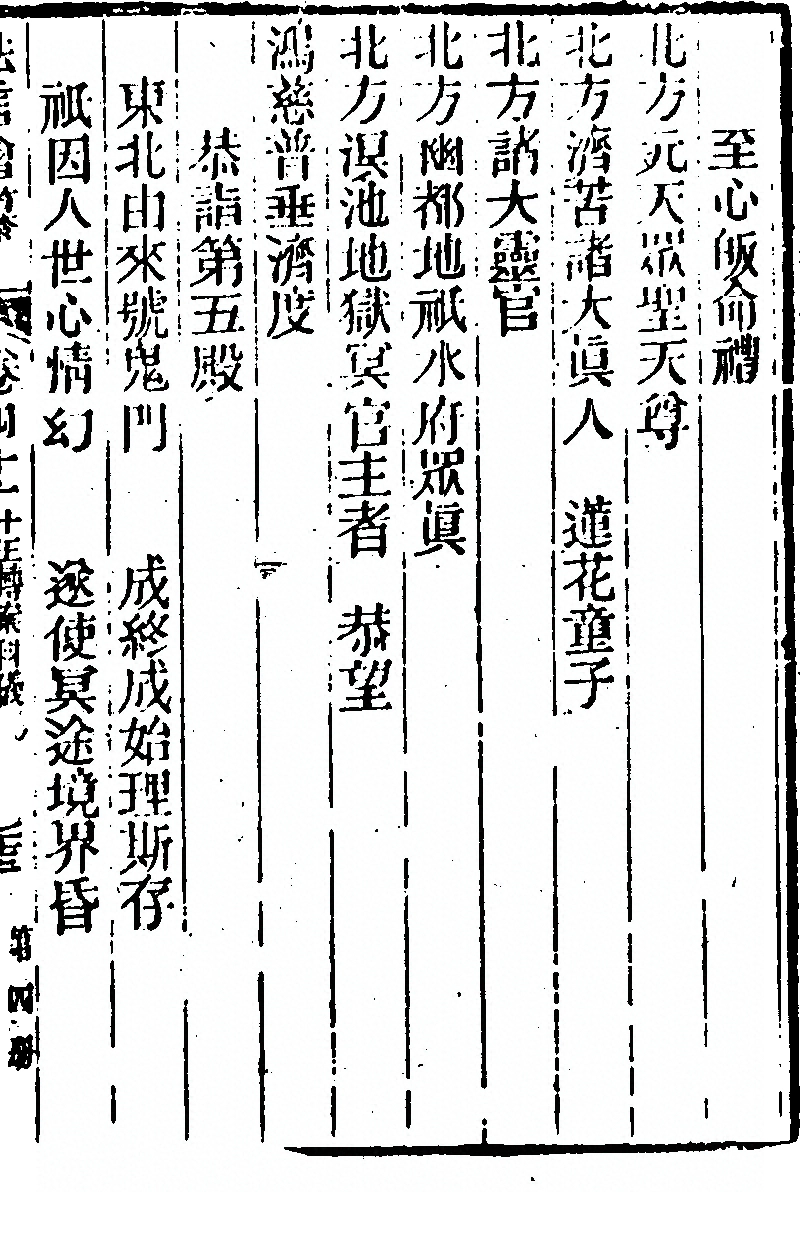 至心皈命禮
北方元天眾聖天尊
北方濟苦諸大眞人　蓮花童子
北方諸大靈官
北方幽都地祇水府眾眞
北方溟池地獄冥官主者　恭望
鴻慈普垂濟度
恭詣第五殿
東北由來號鬼門　成終成始理斯存
祇因人世心情幻　遂使冥途境界昏
卷四十二十王轉案科儀
第四册